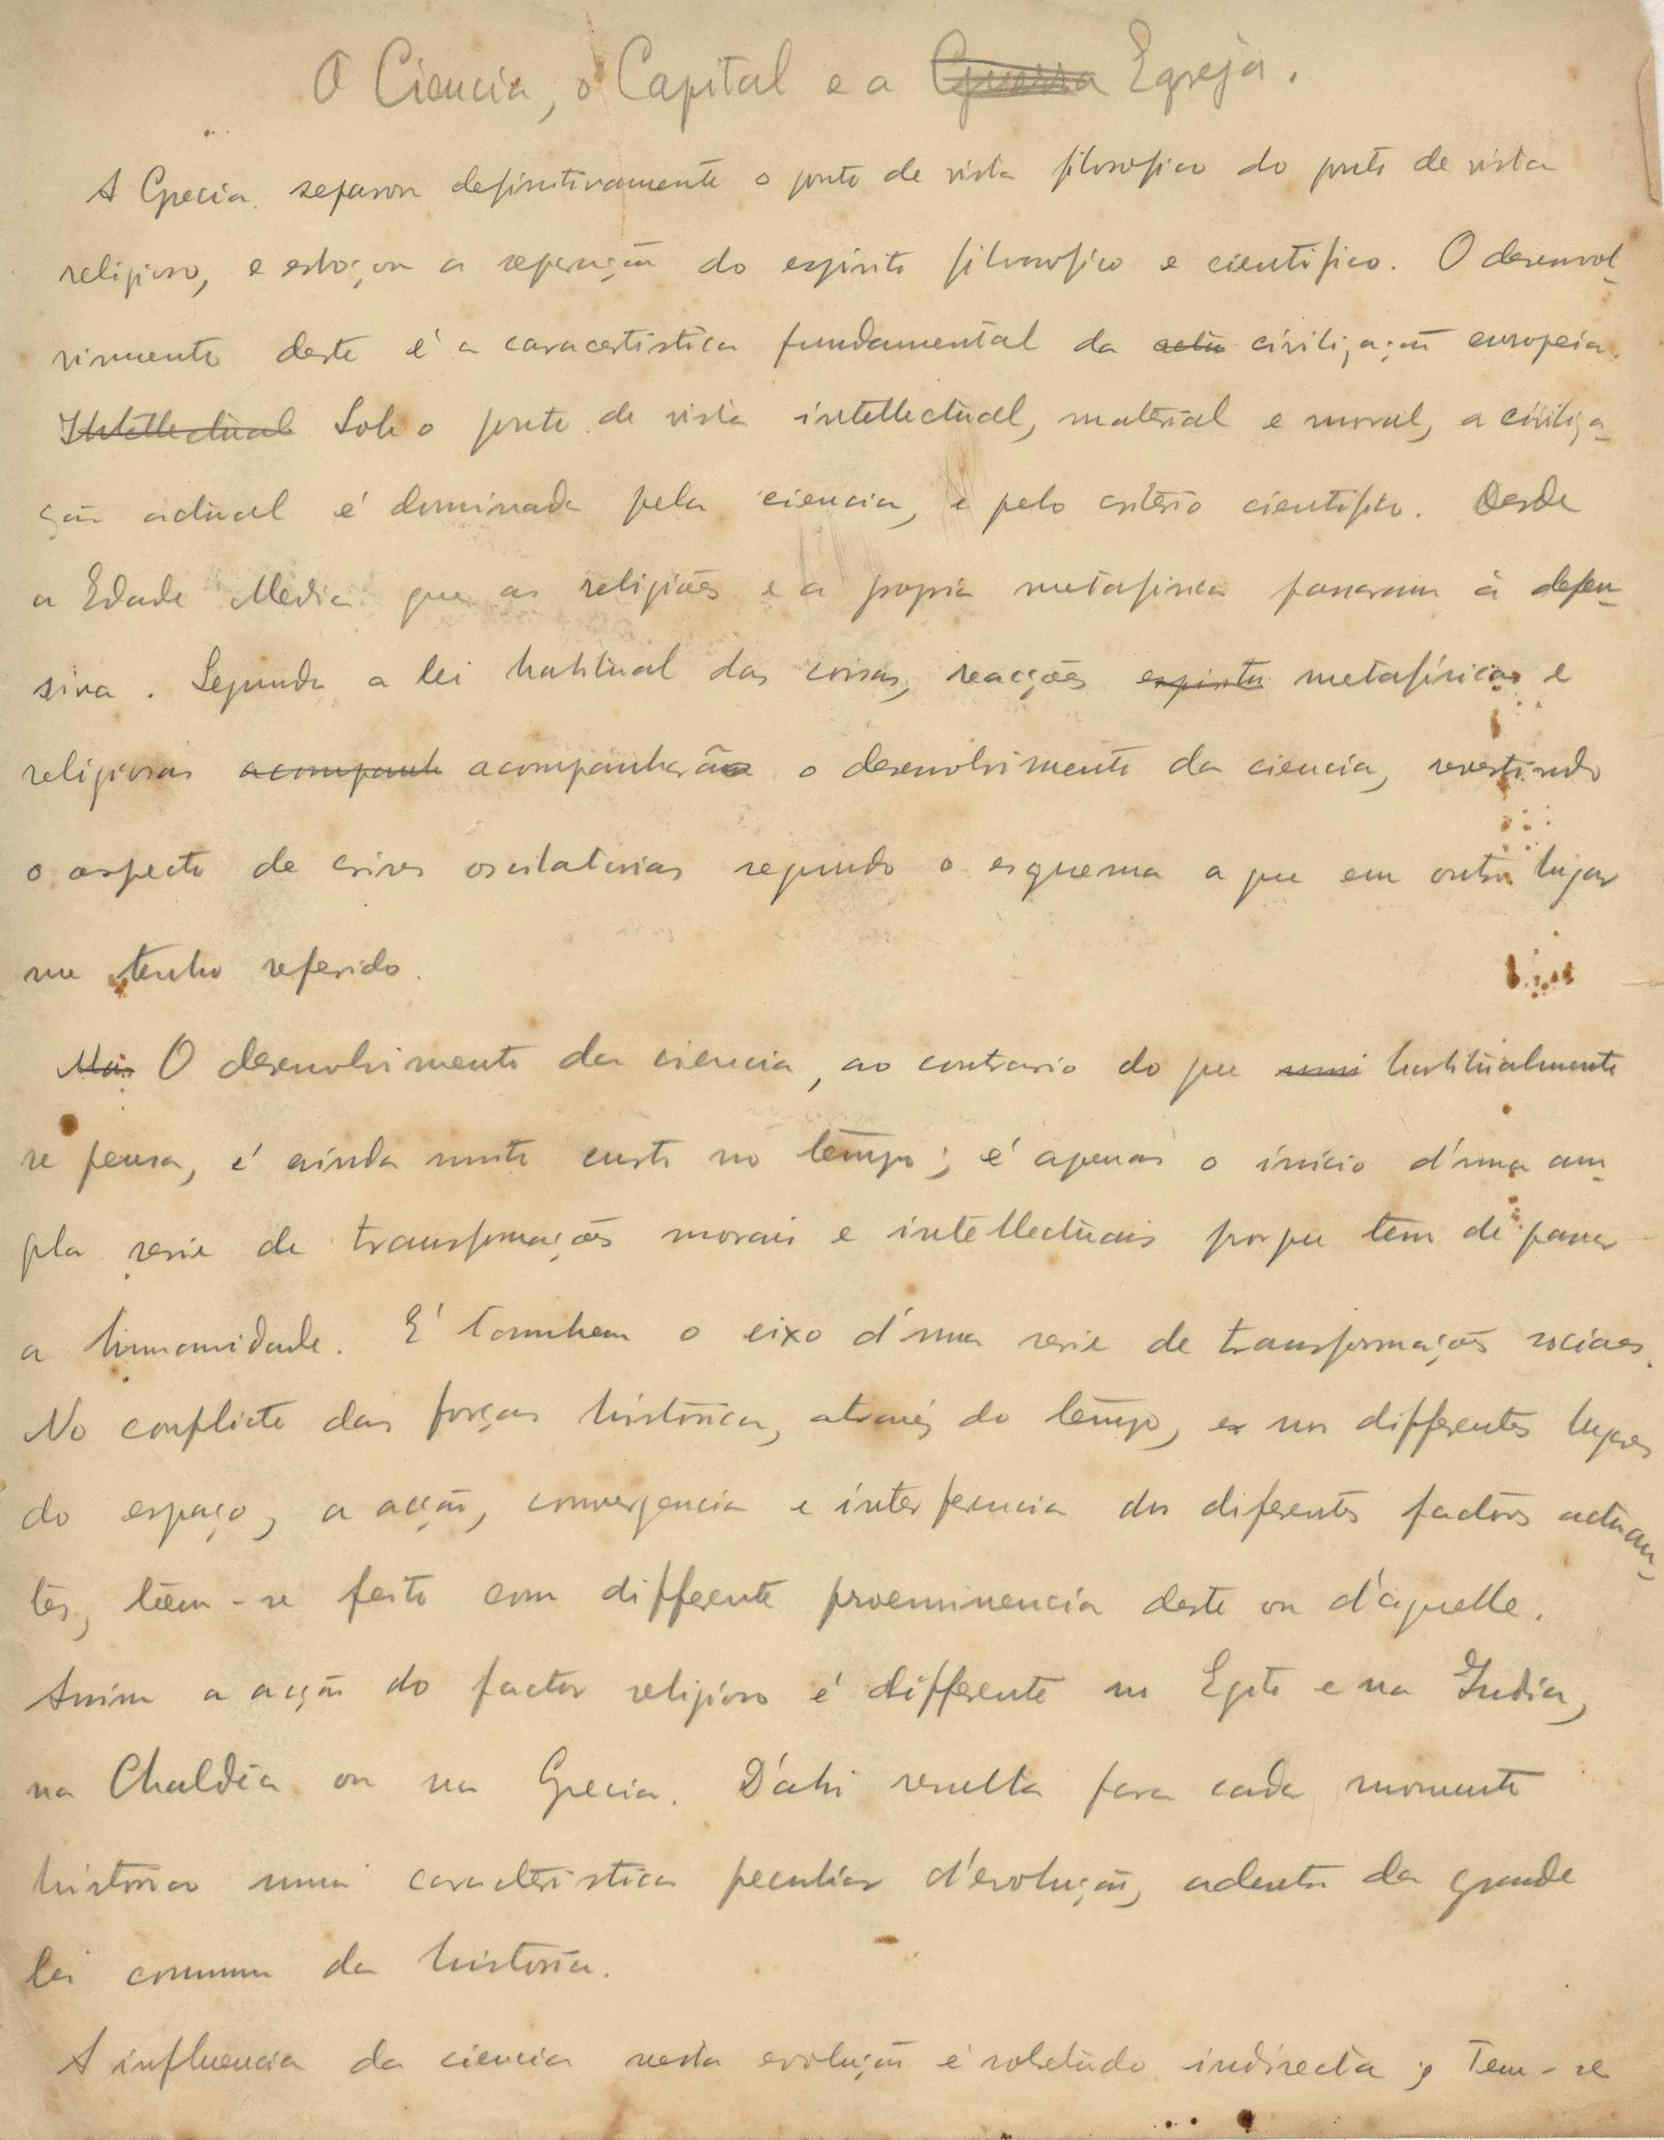 A Ciencia, o Capital e a Guerra Egreja.
A Grecia separou definitivamente o ponto de vista filosofico do ponto de vista
religioso, e esboçou a separação do espirito filosofico e cientifico. O desenvol-
vimento deste é a caracertistica fundamental da actu civilização europeia.
Intellectual Sob o ponto de vista intellectual, material e moral, a civiliza-
ção actual é dominada pela ciencia, e pelo criterio cientifico. Desde
a Edade Media que as religiões e a propria metafisica passaram á defen-
siva. Segundo a lei habitual das coisas, reacções espirito metafisicas e
religiosas acompanh acompanharão o desenvolvimento da ciencia, revestindo
o aspecto de crises oscilatorias segundo o esquema a que em outro lugar
me tenho referido.
Mas O desenvolvimento da ciencia, ao contrario do que mui habitualmente
se pensa, é ainda muito curto no tempo; é apenas o inicio d'uma am-
pla serie de transformações morais e intellectuais porque tem de passar
a humanidade. E' tambem o eixo d'uma serie de transformações sociaes.
No conflicto das forças historicas, através do tempo, e nos differentes lugares
do espaço, a acção, convergencia e interferencia dos diferentes factores actuan-
tes, têem-se feito com differente proeminencia deste ou d'aquelle.
Assim a acção do factor religioso é differente no Egito e na India,
na Chaldêa ou na Grecia. D'ahi resulta para cada momento
historico uma caracteristica peculiar d'evolução, adentro da grande
lei commum da historia.
A influencia da ciencia nesta evolução é sobretudo indirecta; Tem-se